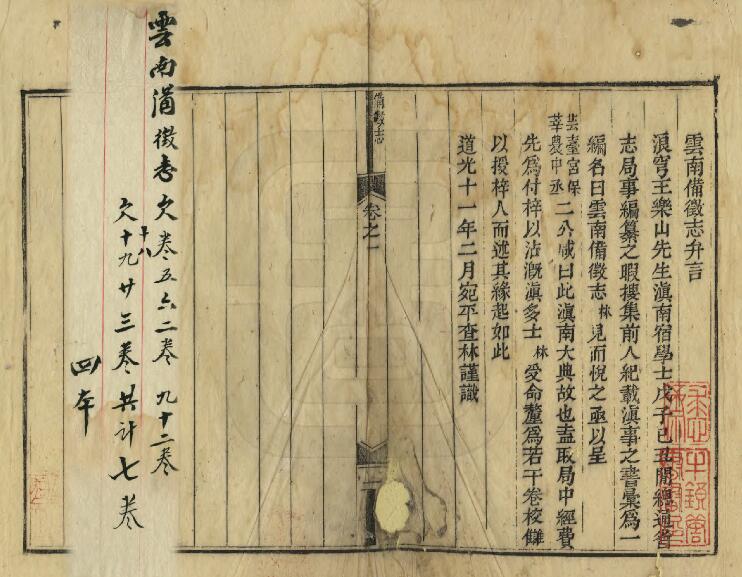 雲南備徵志弁言
浪穹王樂山先生滇南宿學士戊子己丑間總通省
志局事編纂之暇摟集前人紀載滇事之書彙爲一
編名曰雲南備徵志林見而悅之亟以呈
芸臺宮保
莘農中丞
二公咸曰此滇南大典故也盍取局中經費
先爲付梓以沾溉滇多士林受命釐爲若干卷校讎
以授梓人而述其緣起如此
道光十一年二月宛平查林謹識
備徵志
卷之一
雲南備徵志欠卷五六二卷 九十二卷
十八
欠十九廿三卷共计七卷
四本